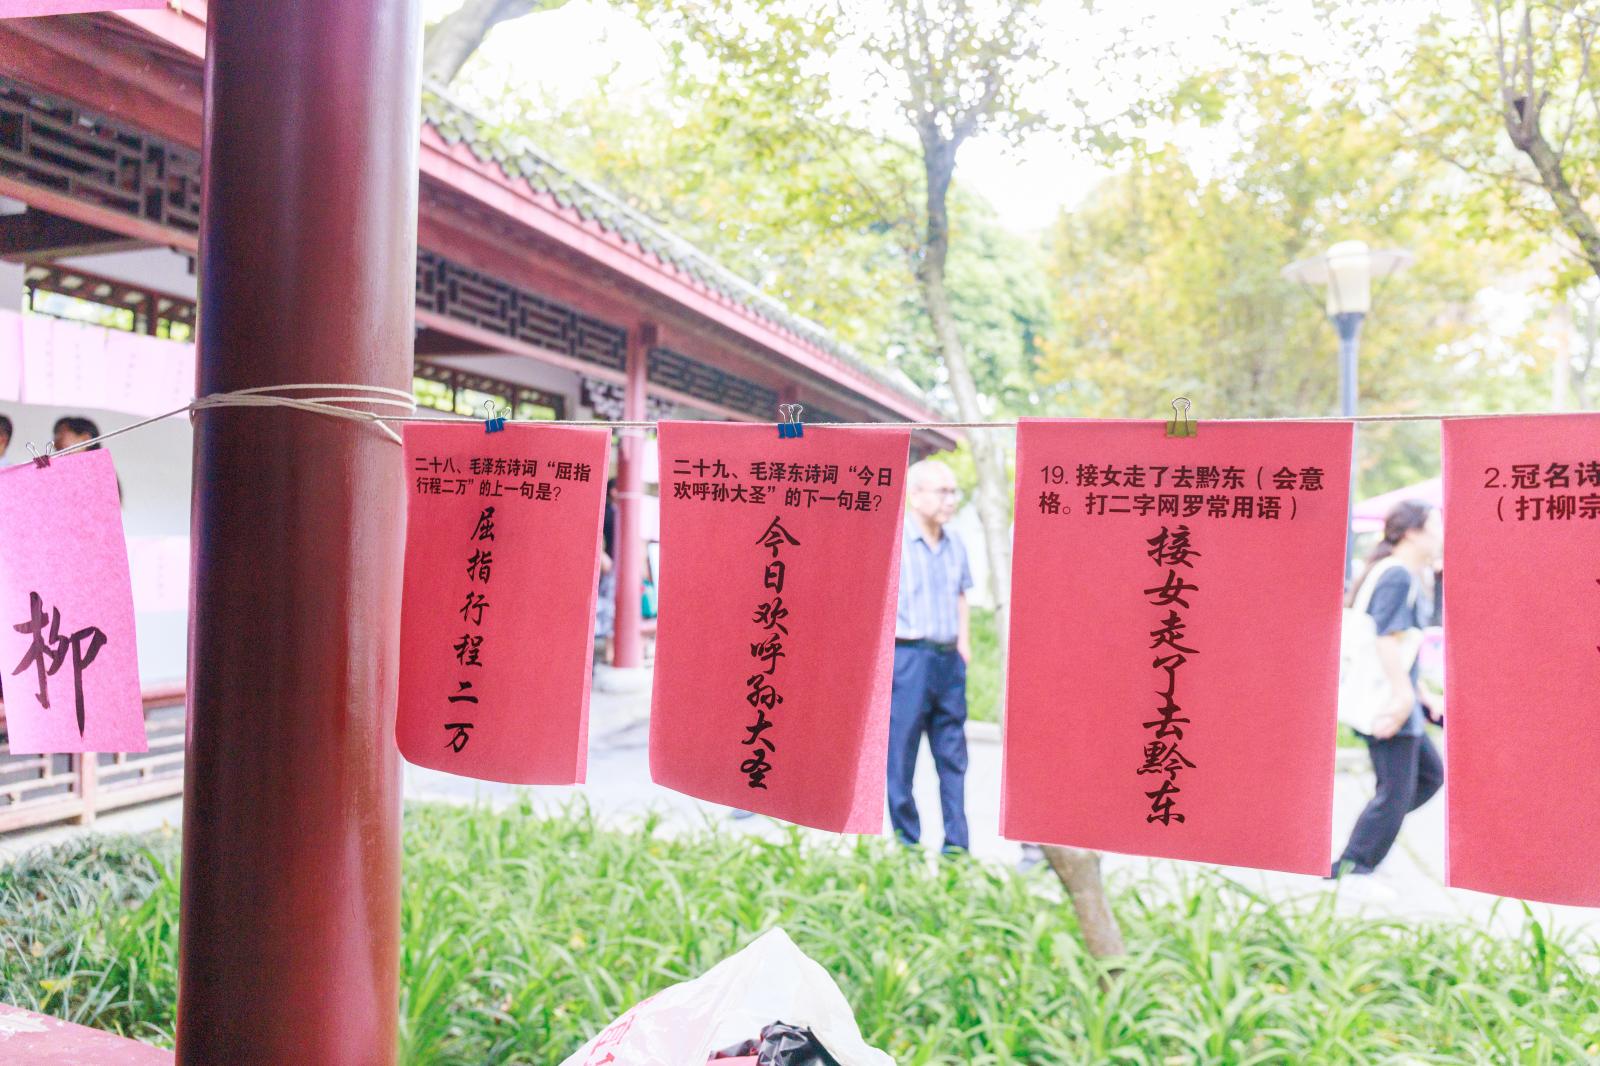 柳
二十八、毛泽东诗词“屈指
行程二万”的上一句是？
屈指行程二万
二十九、毛泽东诗词“今日
欢呼孙大圣”的下一句是？
今日欢呼孙大圣
19. 接女走了去黔东（会意
格。打二字网罗常用语）
接女走了去黔东
2.冠名诗
（打柳宗